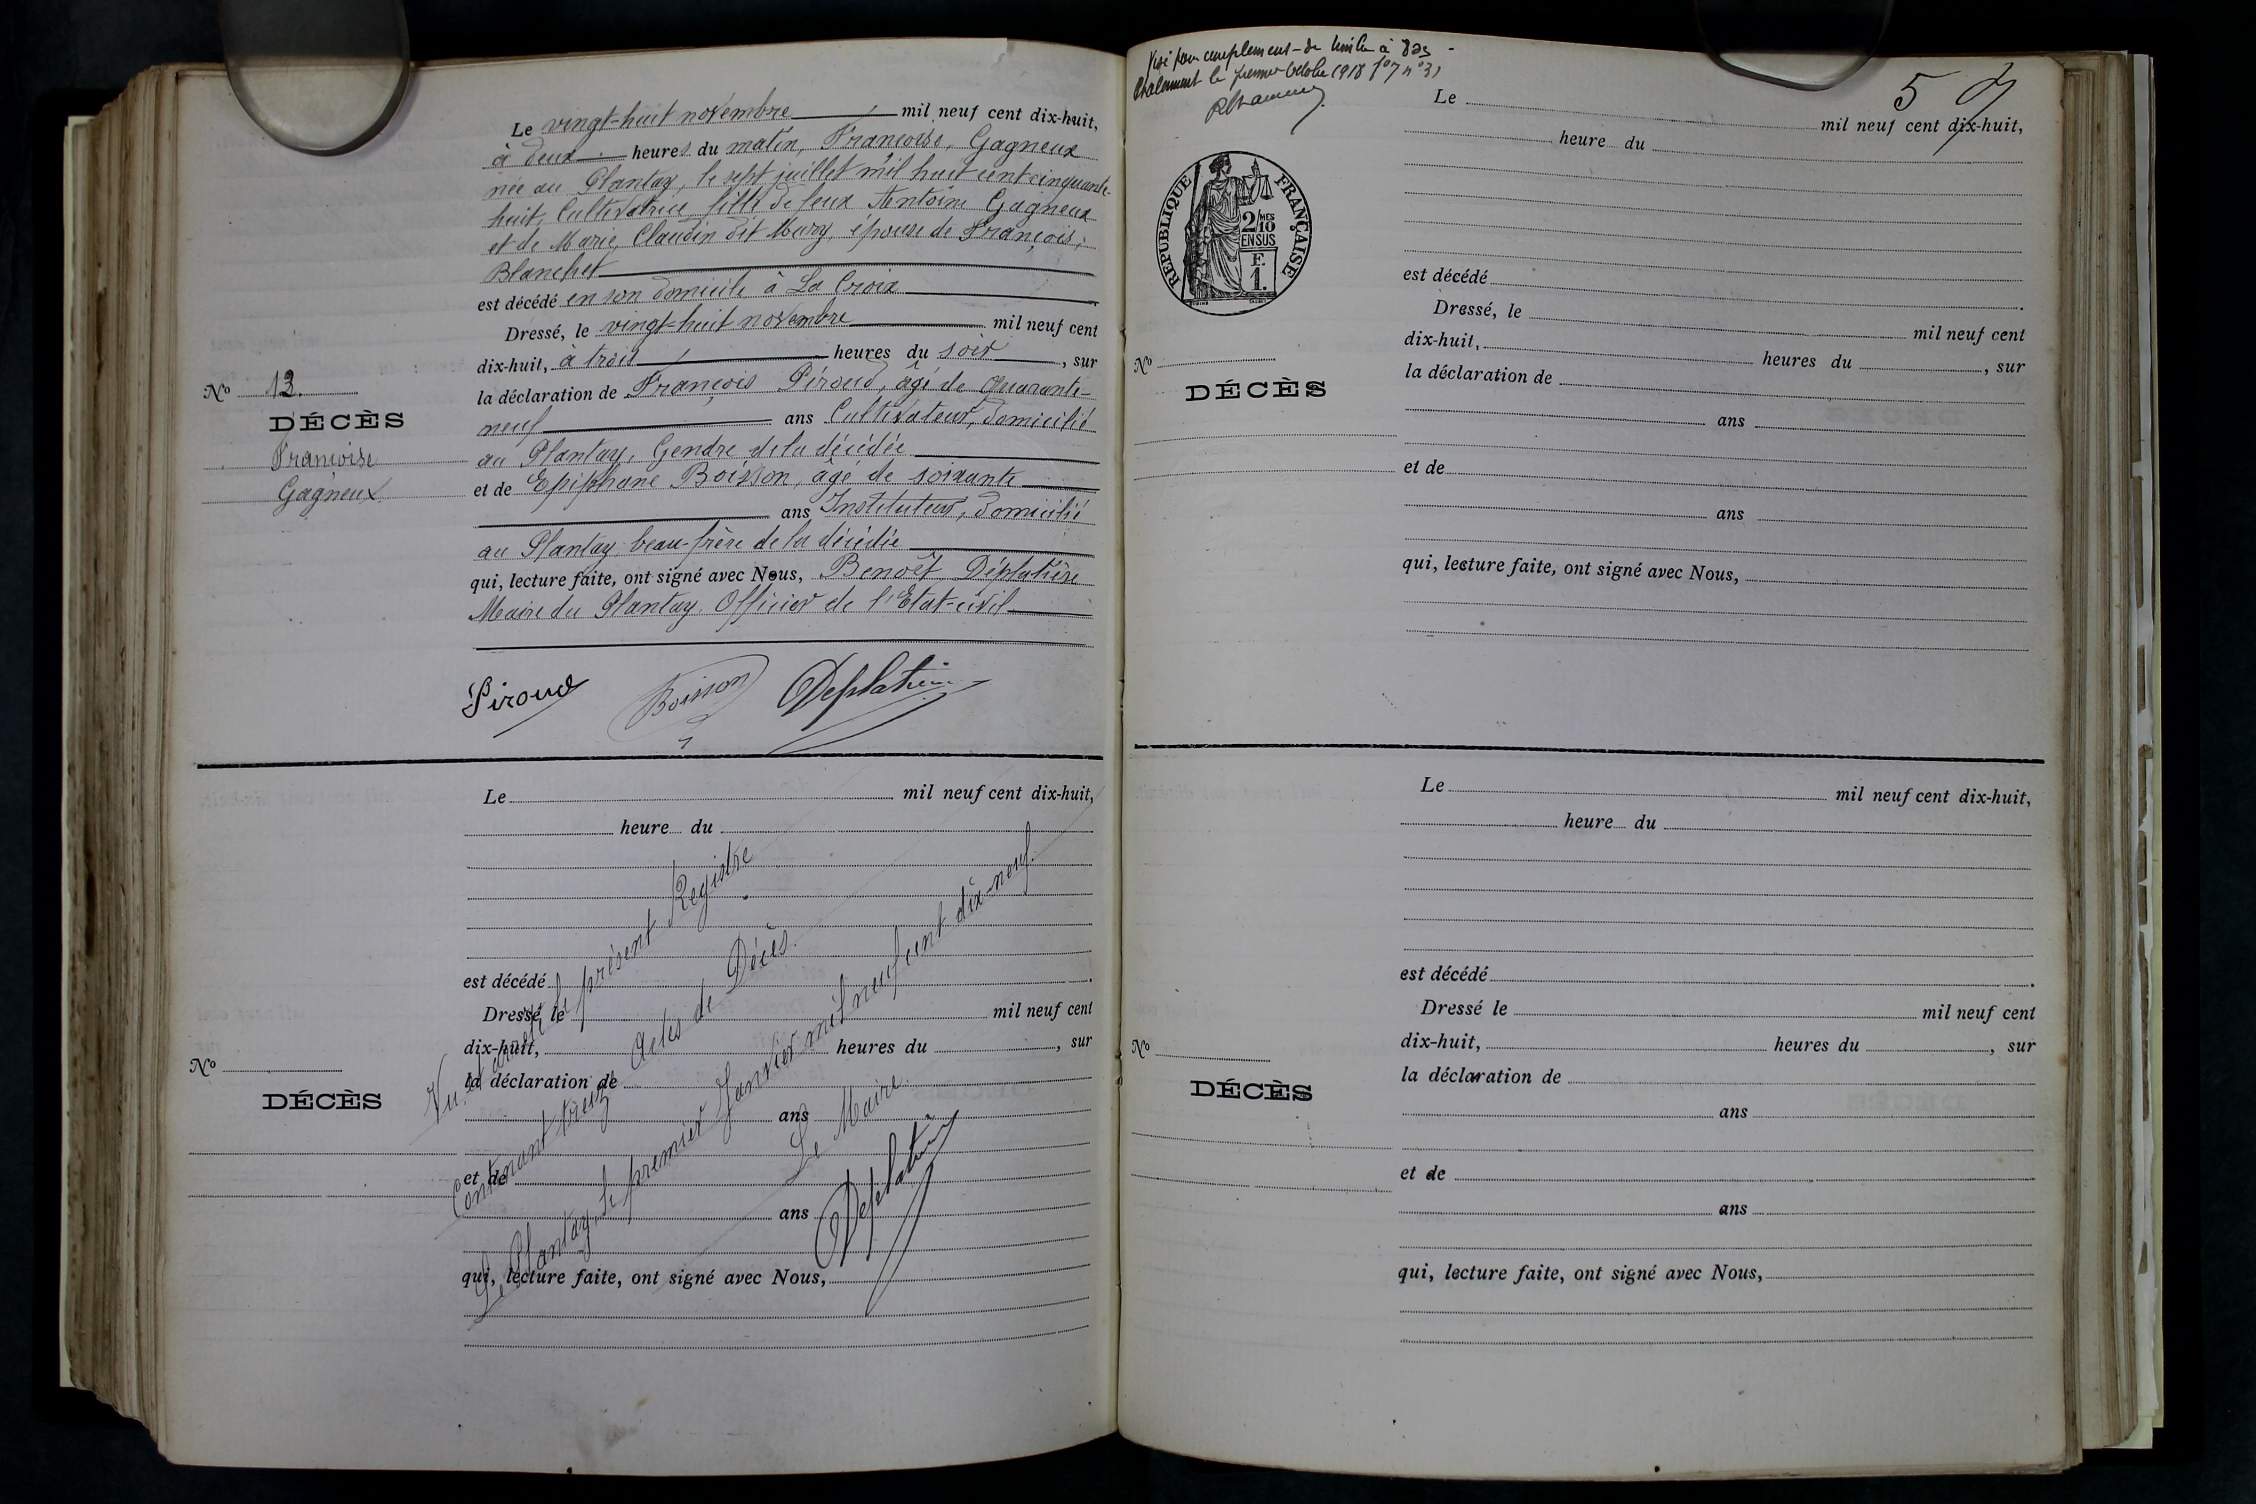 Le vingt-huit novembre mil neuf cent dix-huit,
à deux heures du matin, Françoise, Gagneux
née au Plantay, le sept juillet mil huit cent cinquante-
huit, Cultivatrice, fille de feux Antoine Gagneux
et de Marie, Claudin dit Muroy, épouse de François,
Blanchet
est décédé en son domicile à La Croix
Dressé, le vingt-huit novembre mil neuf cent
dix-huit, à trois heures du soir, sur
la déclaration de François Piroud, âgé de quarante-
neuf ans Cultivateur, domicilié
au Plantay, Gendre de la décédée
et de Epiphane Boisson, âgé de soixante
ans Instituteur, domicilié
au Plantay beau-frère de la décédée
qui, lecture faite, ont signé avec Nous, Benoît Déplatière
Maire du Plantay Officier de l'Etat-civil
Nº 13.
DÉCÈS
Françoise
Gagneux
Piroud Boisson Deplatière
Le mil neuf cent dix-huit,
heure du
est décédé
Dressé le mil neuf cent
dix-huit, heures du , sur
la déclaration de
ans
et de
ans
qui, lecture faite, ont signé avec Nous,
Nº
DÉCÈS
Vu et arrêté le présent Registre
Contenant treize actes de Décès.
Le Plantay, le premier Janvier mil neuf cent dix-neuf.
Le Maire
Deplatière
Visé pour complément de timbre à
Chalamont le premier Octobre 1918 fº 7 nº 31
5
RÉPUBLIQUE FRANÇAISE
2/10 MES
EN SUS
F.
1.
Le mil neuf cent dix-huit,
heure du
est décédé
Dressé, le mil neuf cent
dix-huit, heures du , sur
la déclaration de
ans
et de
ans
qui, lecture faite, ont signé avec Nous,
Nº
DÉCÈS
Le mil neuf cent dix-huit,
heure du
est décédé
Dressé le mil neuf cent
dix-huit, heures du , sur
la déclaration de
ans
et de
ans
qui, lecture faite, ont signé avec Nous,
Nº
DÉCÈS